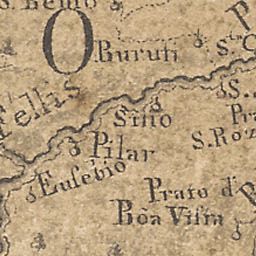 S. Bento
O
Buruti
S. C
Fellis
Sitio
S.
Pra
S. Roz
Pilar
Eusebio
Prato d'
Boa Vista